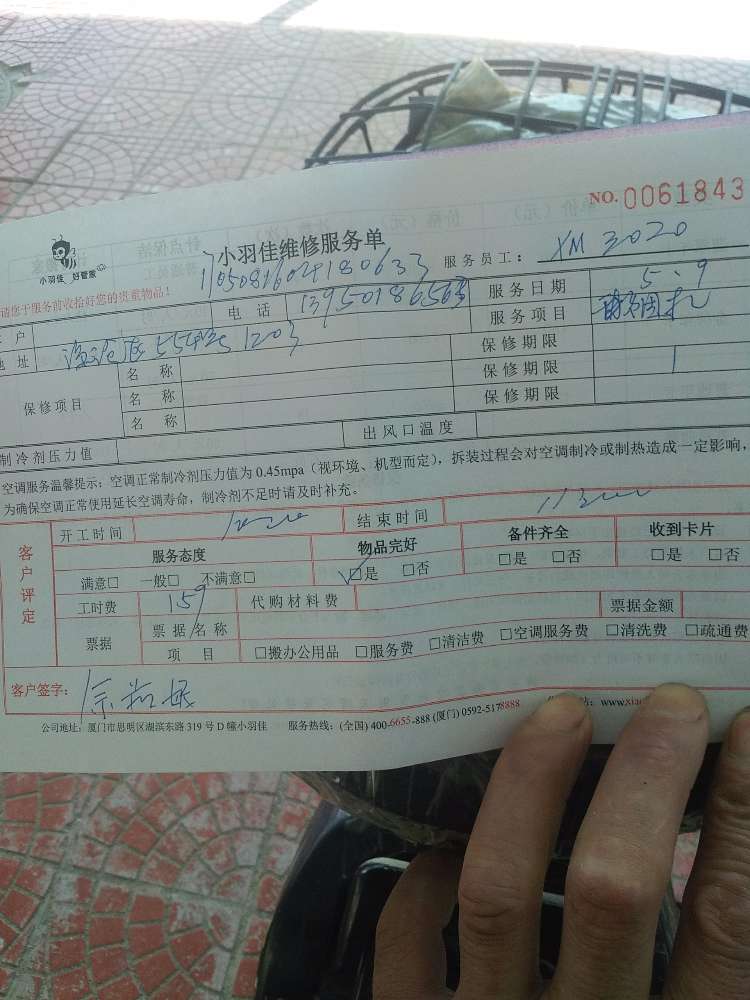 NO. 0061843
小羽佳维修服务单
小羽佳 好管家
服务员工： XM 3020
请您于服务前收拾好您的贵重物品！
客户 电话 13950186563 服务日期 5.9
地址 554号 1203 服务项目
保修项目 名称 保修期限
名称 保修期限
名称 保修期限
制冷剂压力值 出风口温度
空调服务温馨提示：空调正常制冷剂压力值为 0.45mpa（视环境、机型而定），拆装过程会对空调制冷或制热造成一定影响，
为确保空调正常使用延长空调寿命，制冷剂不足时请及时补充。
客户评定 开工时间 结束时间
服务态度 物品完好 备件齐全 收到卡片
满意□ 一般□ 不满意□ □是 □否 □是 □否 □是 □否
工时费 159 代购材料费 票据金额
票据 票据名称
项目 □搬办公用品 □服务费 □清洁费 □空调服务费 □清洗费 □疏通费
客户签字：
公司地址：厦门市思明区湖滨东路 319 号 D 幢小羽佳 服务热线：(全国) 400-6655-888 (厦门) 0592-5178888